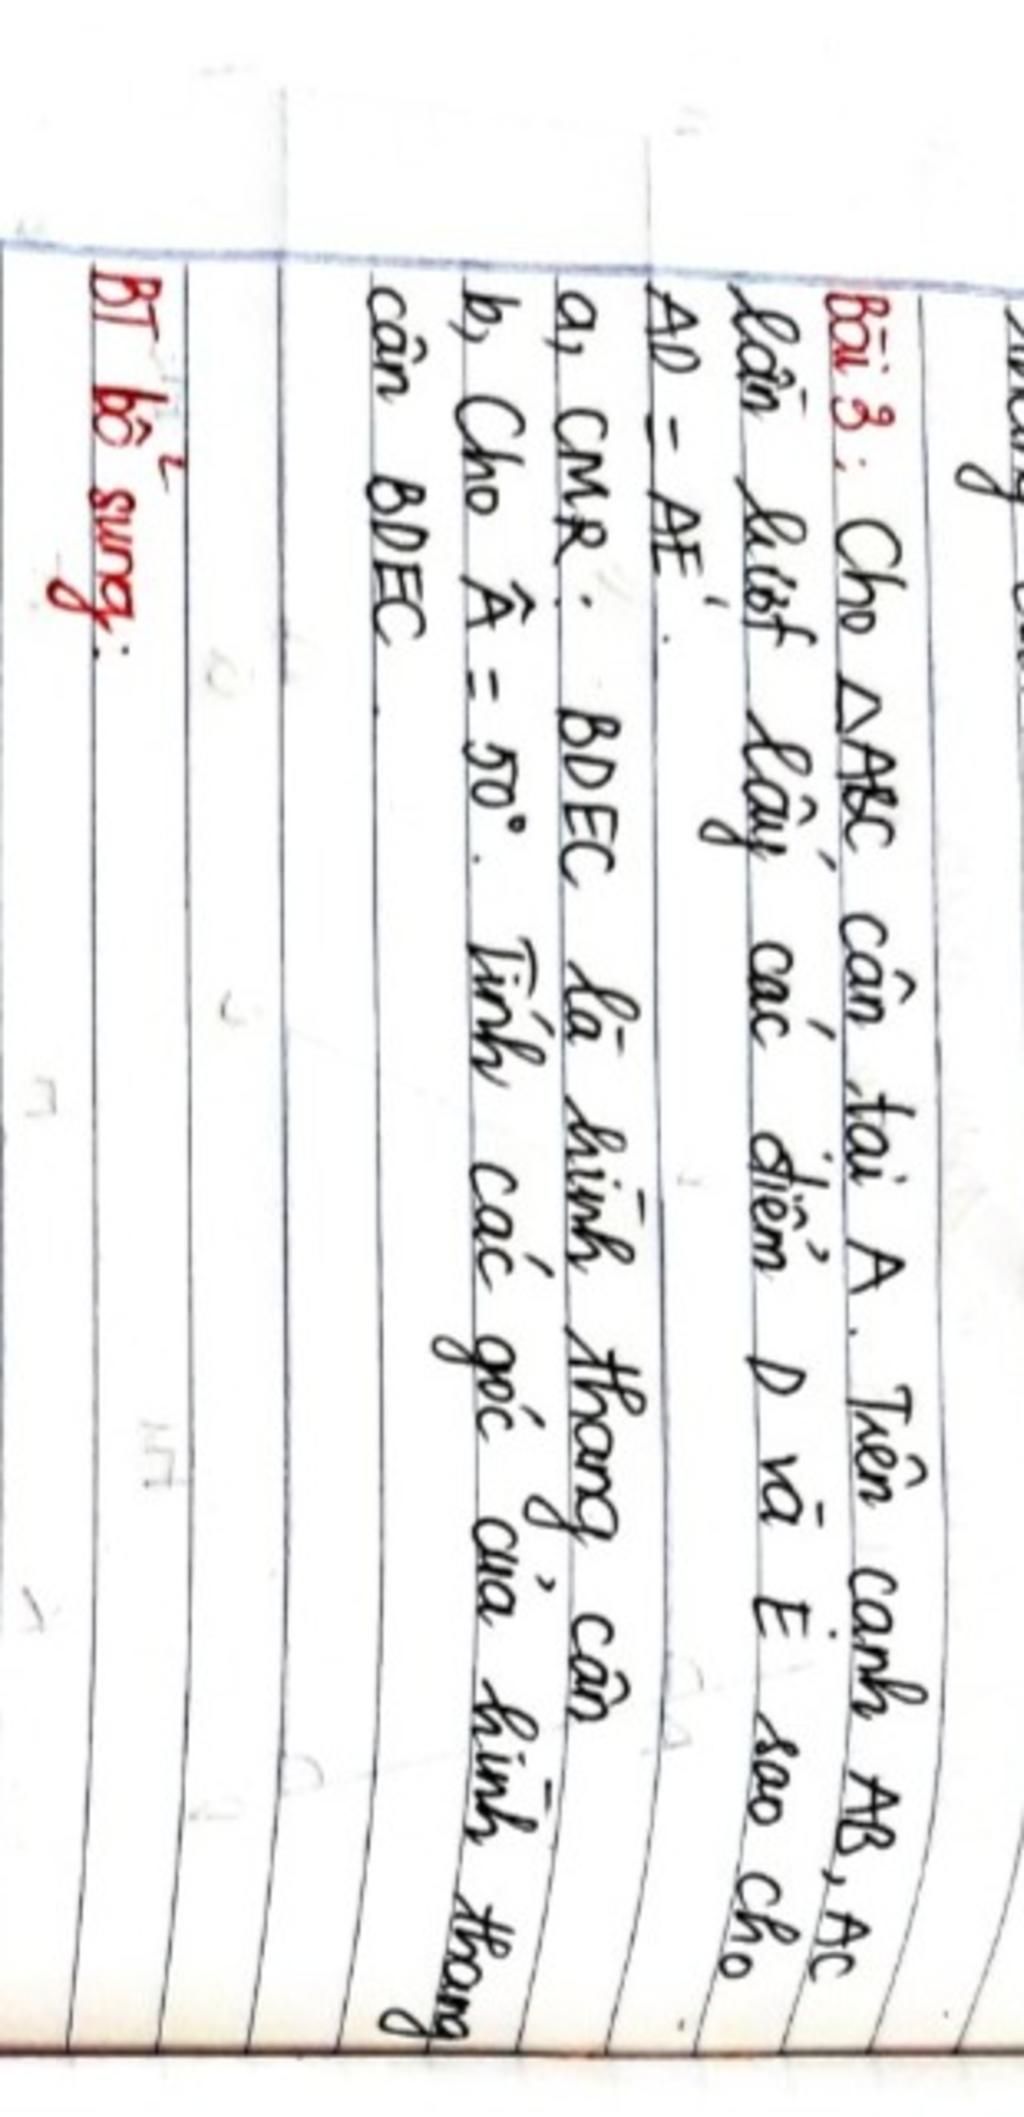 Bài 3: Cho △ABC cân tại A. Trên cạnh AB, AC
lần lượt lấy các điểm D và E sao cho
AD = AE.
a, CMR: BDEC là hình thang cân
b, Cho Â = 50°. Tính các góc của hình thang
cân BDEC
BT bổ sung: